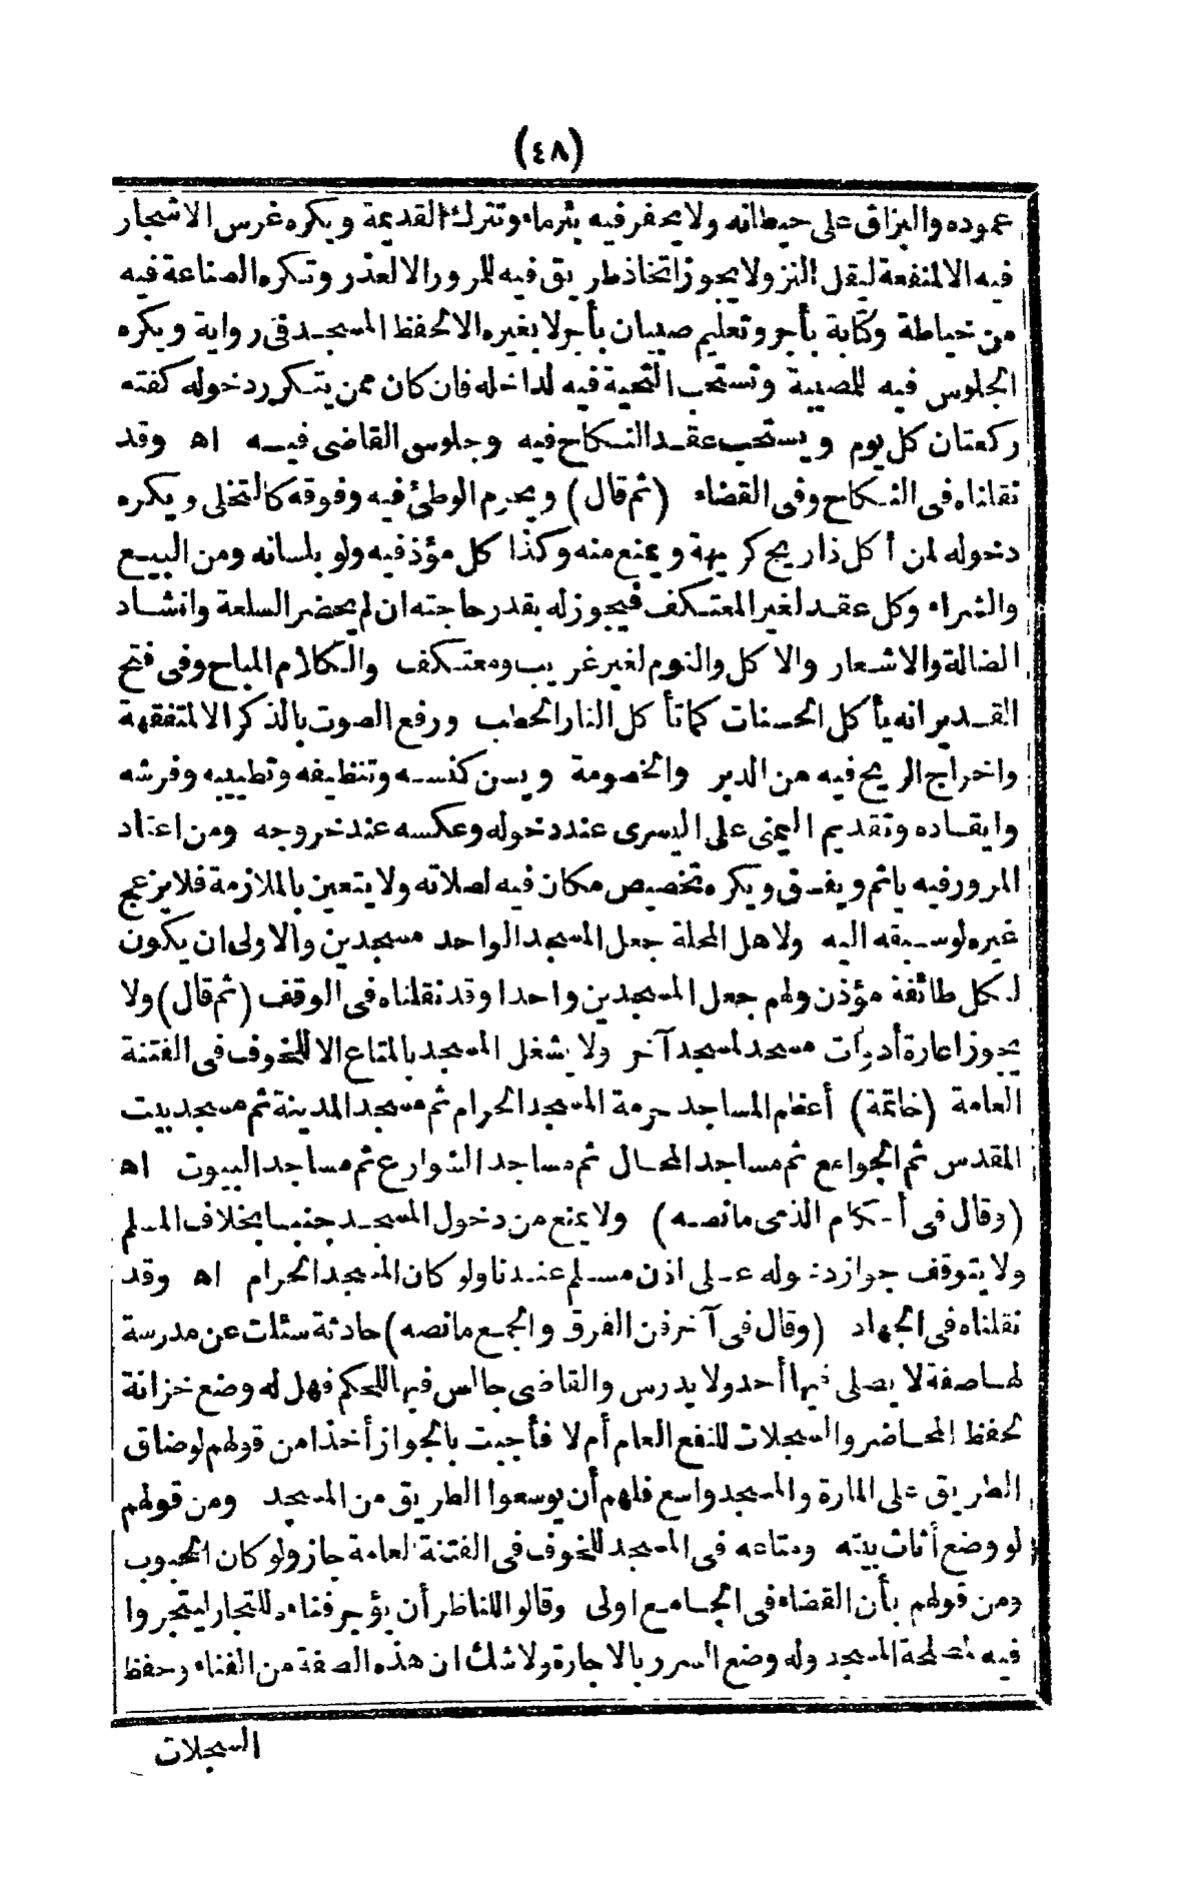 (٤٨)
عموده والبزاق على حيطانه ولا يحفر فيه بئرماء وتترك القديمة ويكره غرس الاشجار
فيه الالمنفعة ليقل النز ولا يجوز اتخاذ طريق فيه للمرور الا لعذر وتكره الصناعة فيه
من خياطة وكتابة بأجر وتعليم صبيان بأجر لا بغيره الا لحفظ المسجد فى رواية ويكره
الجلوس فيه للمصيبة وتستحب التحية فيه لداخله فان كان ممن يتكرر دخوله كفته
ركعتان كل يوم ويستحب عقد النكاح فيه وجلوس القاضى فيه اه وقد
نقلناه فى النكاح وفى القضاء (ثم قال) ويحرم الوطئ فيه وفوقه كالتخلى ويكره
دخوله لمن أكل ذا ريح كريهة ويمنع منه وكذا كل مؤذ فيه ولو بلسانه ومن البيع
والشراء وكل عقد لغير المعتكف فيجوز له بقدر حاجته ان لم يحضر السلعة وانشاد
الضالة والاشعار والاكل والنوم لغير غريب ومعتكف والكلام المباح وفى فتح
القدير انه يأكل الحسنات كما تأكل النار الحطب ورفع الصوت بالذكر الا للمتفقهة
واخراج الريح فيه من الدبر والخصومة ويسن كنسه وتنظيفه وتطييبه وفرشه
وايقاده وتقديم اليمنى على اليسرى عند دخوله وعكسه عند خروجه ومن اعتاد
المرور فيه ياثم ويفسق ويكره تخصيص مكان فيه لصلاته ولا يتعين بالملازمة فلا يزعج
غيره لو سبقه اليه ولاهل المحلة جعل المسجد الواحد مسجدين والاولى ان يكون
لكل طائفة مؤذن ولهم جعل المسجدين واحدا وقد نقلناه فى الوقف (ثم قال) ولا
يجوز اعارة أدوات مسجد لمسجد آخر ولا يشغل المسجد بالمتاع الا للخوف فى الفتنة
العامة (خاتمة) أعظم المساجد حرمة المسجد الحرام ثم مسجد المدينة ثم مسجد بيت
المقدس ثم الجوامع ثم مساجد المحال ثم مساجد الشوارع ثم مساجد البيوت اه
(وقال فى أحكام الذمى مانصه) ولا يمنع من دخول المسجد جنبا بخلاف المسلم
ولا يتوقف جواز دخوله على اذن مسلم عندنا ولو كان المسجد الحرام اه وقد
نقلناه فى الجهاد (وقال فى آخر فن الفرق والجمع مانصه) حادثة سئلت عن مدرسة
لها صفة لا يصلى فيها أحد ولا يدرس والقاضى جالس فيها للحكم فهل له وضع خزانة
لحفظ المحاضر والسجلات للنفع العام أم لا فأجبت بالجواز أخذا من قولهم لو ضاق
الطريق على المارة والمسجد واسع فلهم أن يوسعوا الطريق من المسجد ومن قولهم
لو وضع أثاث بيته ومتاعه فى المسجد للخوف فى الفتنة العامة جاز ولو كان الحبوب
ومن قولهم بأن القضاء فى الجامع اولى وقالوا للناظر أن يؤجر فناءه للتجار ليتجروا
فيه لمصلحة المسجد وله وضع السرر بالاجارة ولا شك ان هذه الصفة من الفناء وحفظ
السجلات